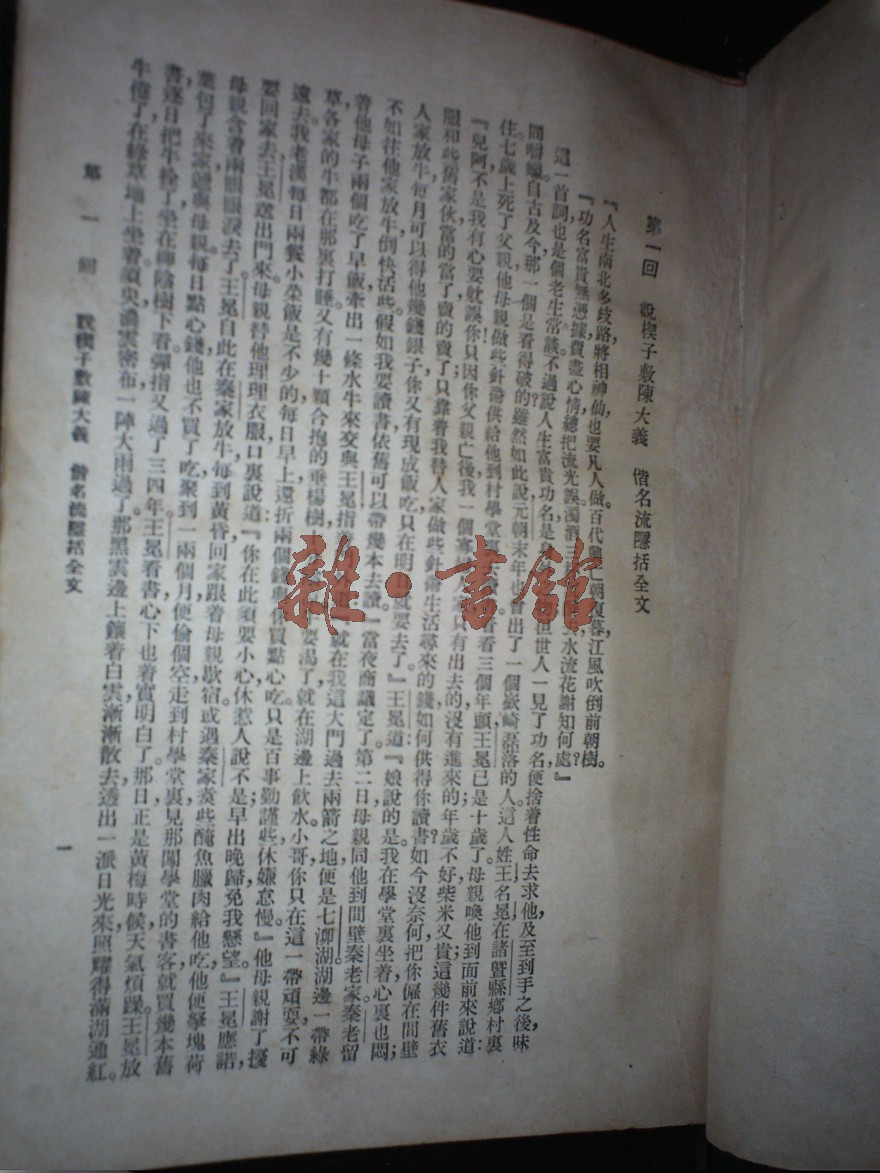 第一回 說楔子敷陳大義 借名流隱括全文
『人生南北多歧路,將相神仙也要凡人做。百代興亡朝復暮,江風吹倒前朝樹。
『功名富貴無憑據,費盡心情總把流光誤。濁酒三水流花謝知何處?』
這一首詞也是個老生常談,不過說人生富貴功名是但世人一見了功名便捨着性命去求他,及至到手之後,味
同嚼蠟。自古及今,那一個是看得破的?雖然如此說,元朝末年也曾出了一個嶔崎磊落的人。這人姓王名冕,在諸暨縣鄉村裏
住。七歲上死了父親,他母親做些針黹供給他到村學堂裏讀看看三個年頭,王冕已是十歲了。母親喚他到面前來說道:
『兒阿!不是我有心要躭誤你。只因你父親亡後,我一個寡只有出去的,沒有進來的;年歲不好,柴米又貴;這幾件舊衣
服和些舊家伙,當的當了,賣的賣了;只靠着我替人家做些針黹生活尋來的錢,如何供得你讀書?如今沒奈何,把你僱在間壁
人家放牛,每月可以得他幾錢銀子,你又有現成飯吃,只在明就要去了。』王冕道:『娘說的是。我在學堂裏坐着,心裏也悶;
不如往他家放牛,倒快活些。假如我要讀書,依舊可以帶幾本去讀。』當夜商議定了。第二日,母親同他到間壁秦老家。秦老留
着他母子兩個吃了早飯,牽出一條水牛來交與王冕,指就在我這大門過去兩箭之地便是七泖湖,湖邊一帶綠
草,各家的牛都在那裏打睡。又有幾十顆合抱的垂楊樹,要渴了,就在湖邊上飲水。小哥,你只在這一帶頑耍,不可
遠去。我老漢每日兩餐小菜飯是不少的;每日早上,還折兩個錢與你買點心吃。只是百事勤謹些,休嫌怠慢。』他母親謝了擾
要回家去,王冕送出門來。母親替他理理衣服,口裏說道:『你在此須要小心,休惹人說不是;早出晚歸,免我懸望。』王冕應諾,
母親含着兩眼眼淚去了。王冕自此在秦家放牛,每到黃昏,回家跟着母親歇宿。或遇秦家煑些醃魚臘肉給他吃,他便拏塊荷
葉包了來家,遞與母親。每日點心錢,他也不買了吃,聚到一兩個月,便偷個空,走到村學堂裏,見那闖學堂的書客,就買幾本舊
書,逐日把牛栓了,坐在柳陰樹下看。彈指又過了三四年,王冕看書,心下也着實明白了。那日正是黃梅時候,天氣煩躁。王冕放
牛倦了,在綠草地上坐着。須臾,濃雲密布,一陣大雨過了。那黑雲邊上鑲着白雲,漸漸散去,透出一派日光來,照耀得滿湖通紅。
第一回 說楔子敷陳大義 借名流隱括全文
一
雜·書館